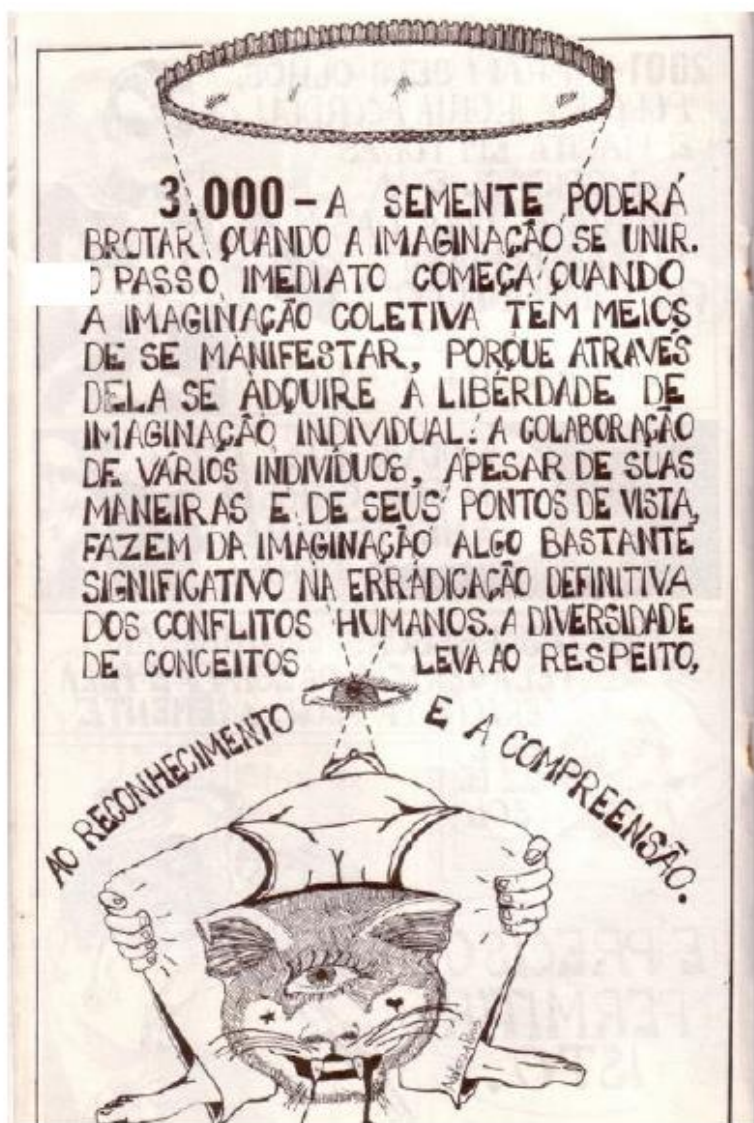 3.000 – A SEMENTE PODERÁ
BROTAR QUANDO A IMAGINAÇÃO SE UNIR.
O PASSO IMEDIATO COMEÇA QUANDO
A IMAGINAÇÃO COLETIVA TEM MEIOS
DE SE MANIFESTAR, PORQUE ATRAVÉS
DELA SE ADQUIRE A LIBERDADE DE
IMAGINAÇÃO INDIVIDUAL. A COLABORAÇÃO
DE VÁRIOS INDIVÍDUOS, APESAR DE SUAS
MANEIRAS E DE SEUS PONTOS DE VISTA,
FAZEM DA IMAGINAÇÃO ALGO BASTANTE
SIGNIFICATIVO NA ERRADICAÇÃO DEFINITIVA
DOS CONFLITOS HUMANOS. A DIVERSIDADE
DE CONCEITOS LEVA AO RESPEITO,
AO RECONHECIMENTO E A COMPREENSÃO.